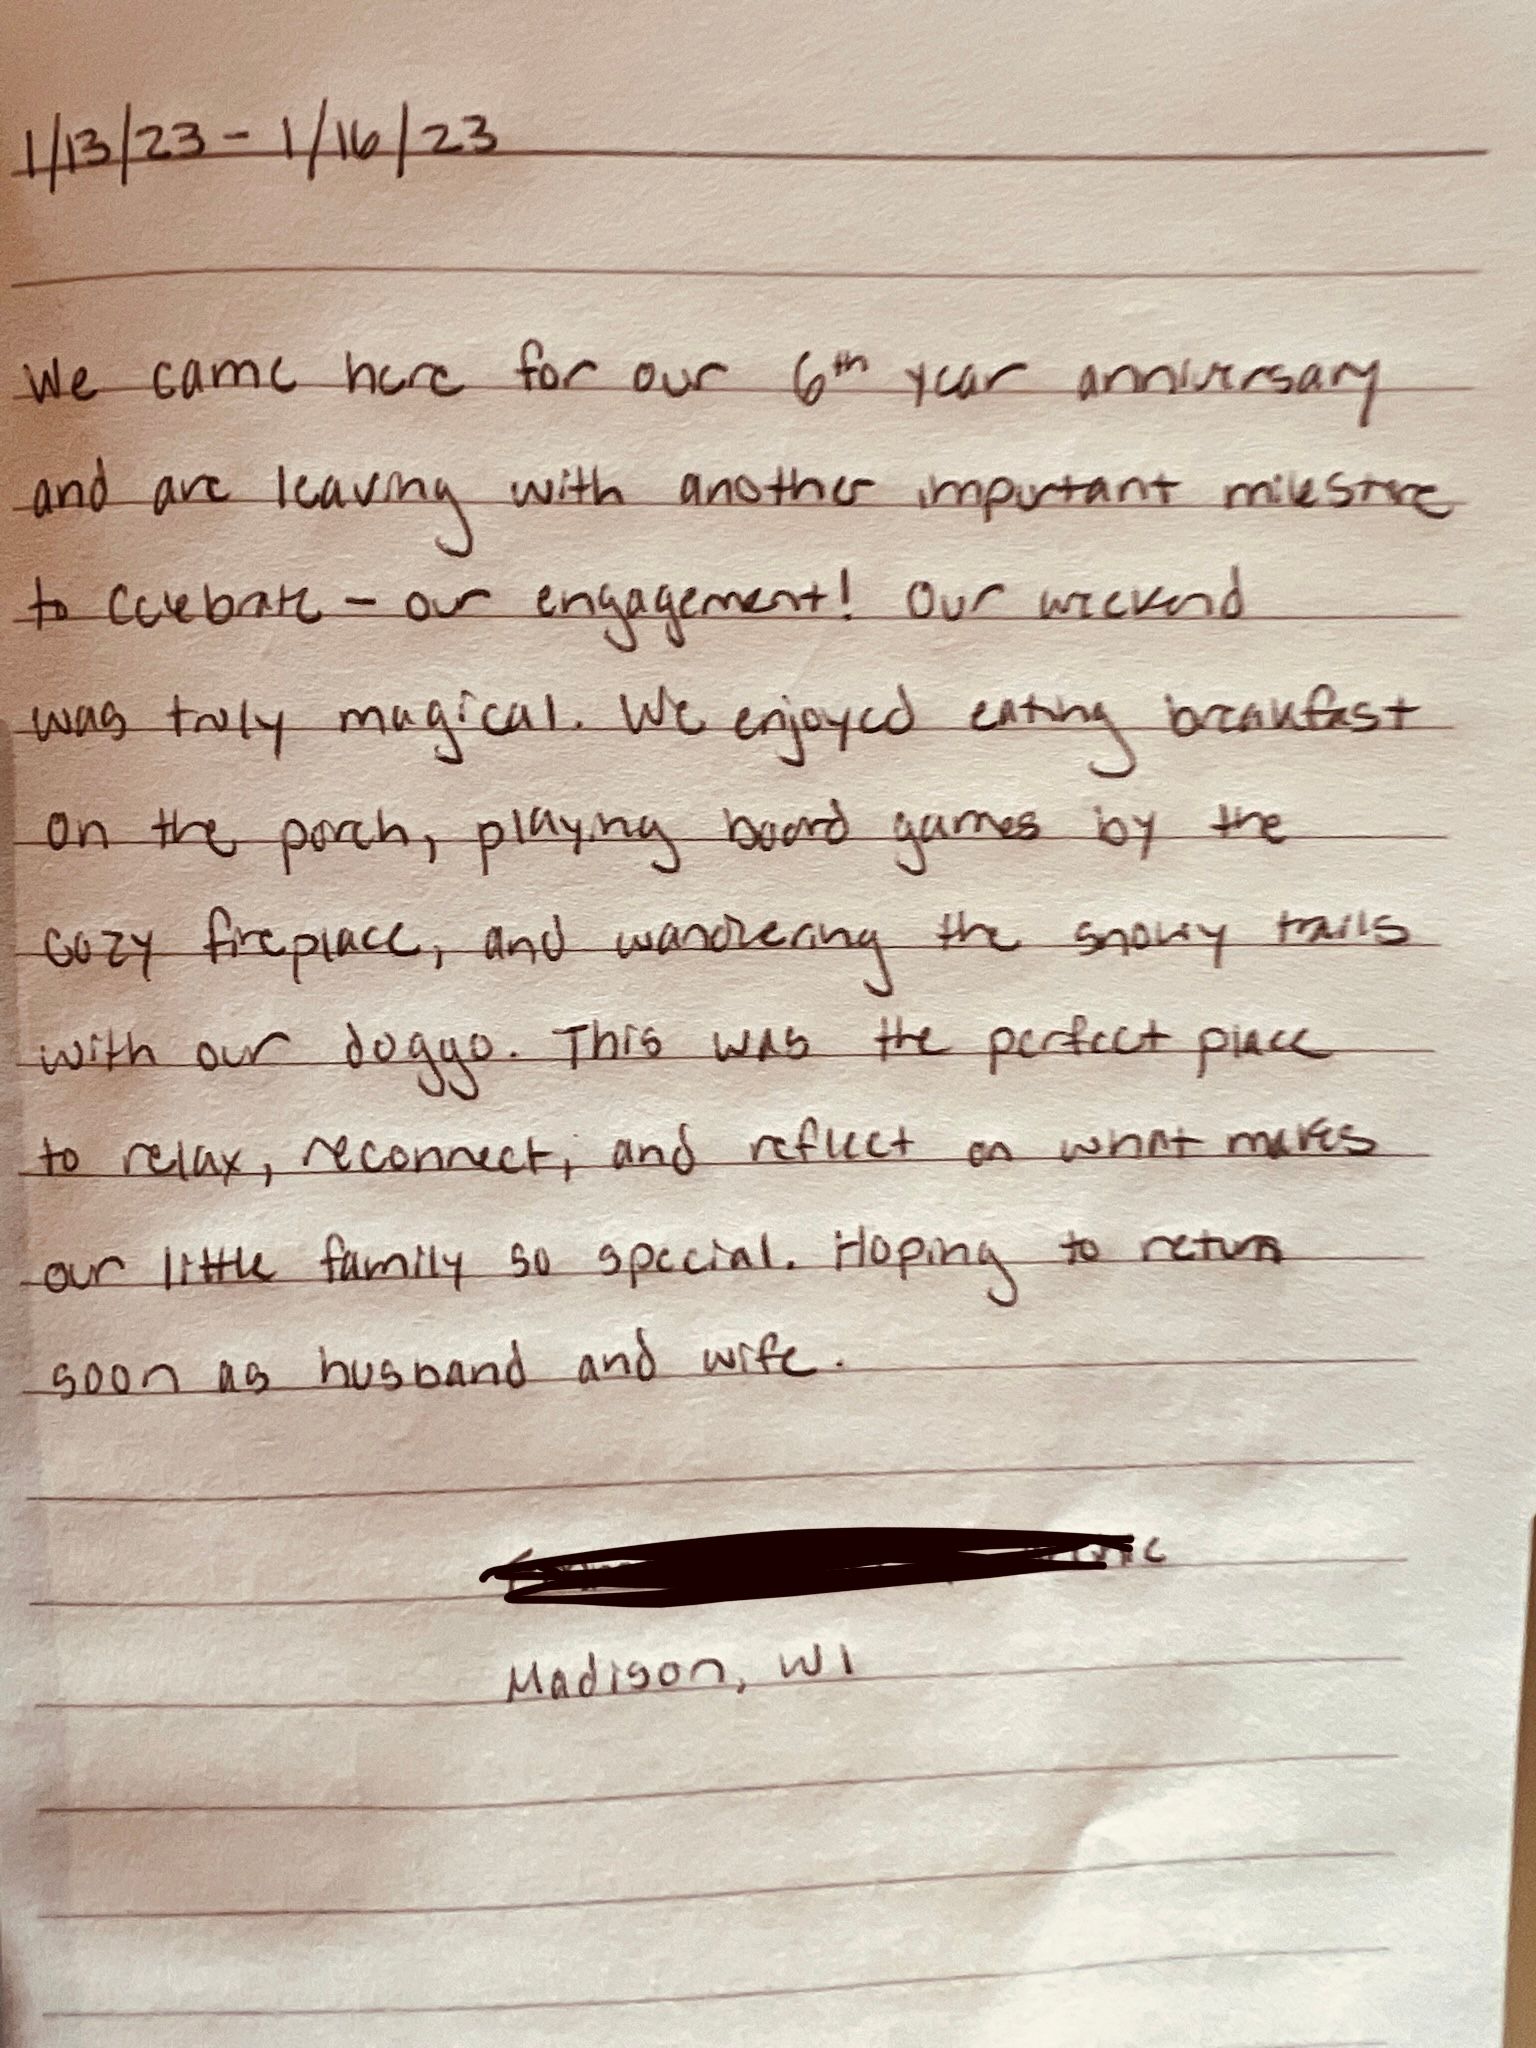 1/13/23 - 1/16/23
We came here for our 6th year anniversary
and are leaving with another important milestone
to celebrate - our engagement! Our weekend
was truly magical. We enjoyed eating breakfast
on the porch, playing board games by the
cozy fireplace, and wandering the snowy trails
with our doggo. This was the perfect place
to relax, reconnect, and reflect on what makes
our little family so special. Hoping to return
soon as husband and wife.
Madison, WI